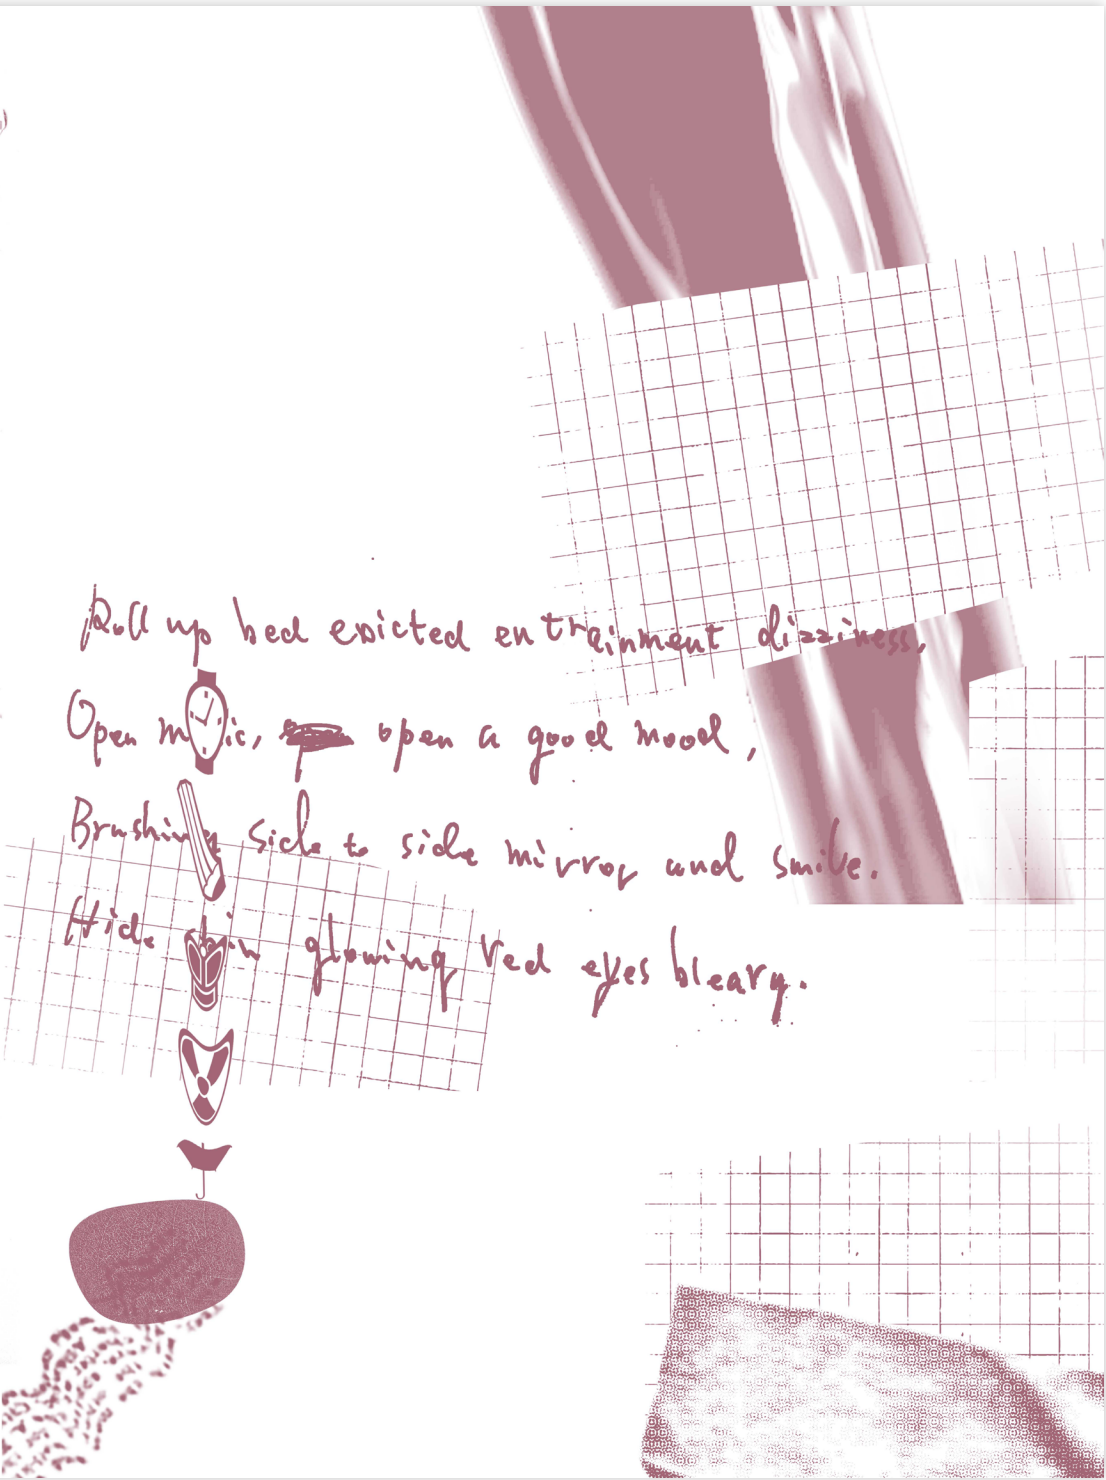 Roll up bed evicted entrainment dizziness,
Open open a good mood,
Brushing side to side mirror and smile.
Hide glowing red eyes bleary.